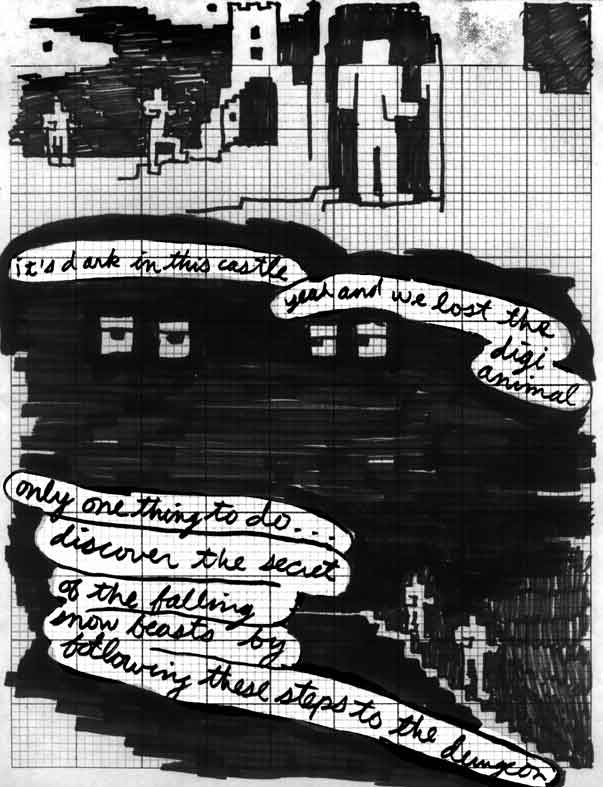 it's dark in this castle
yeah and we lost the
digi
animal
only one thing to do...
discover the secret
of the falling
snow beasts by
following these steps to the dungeon